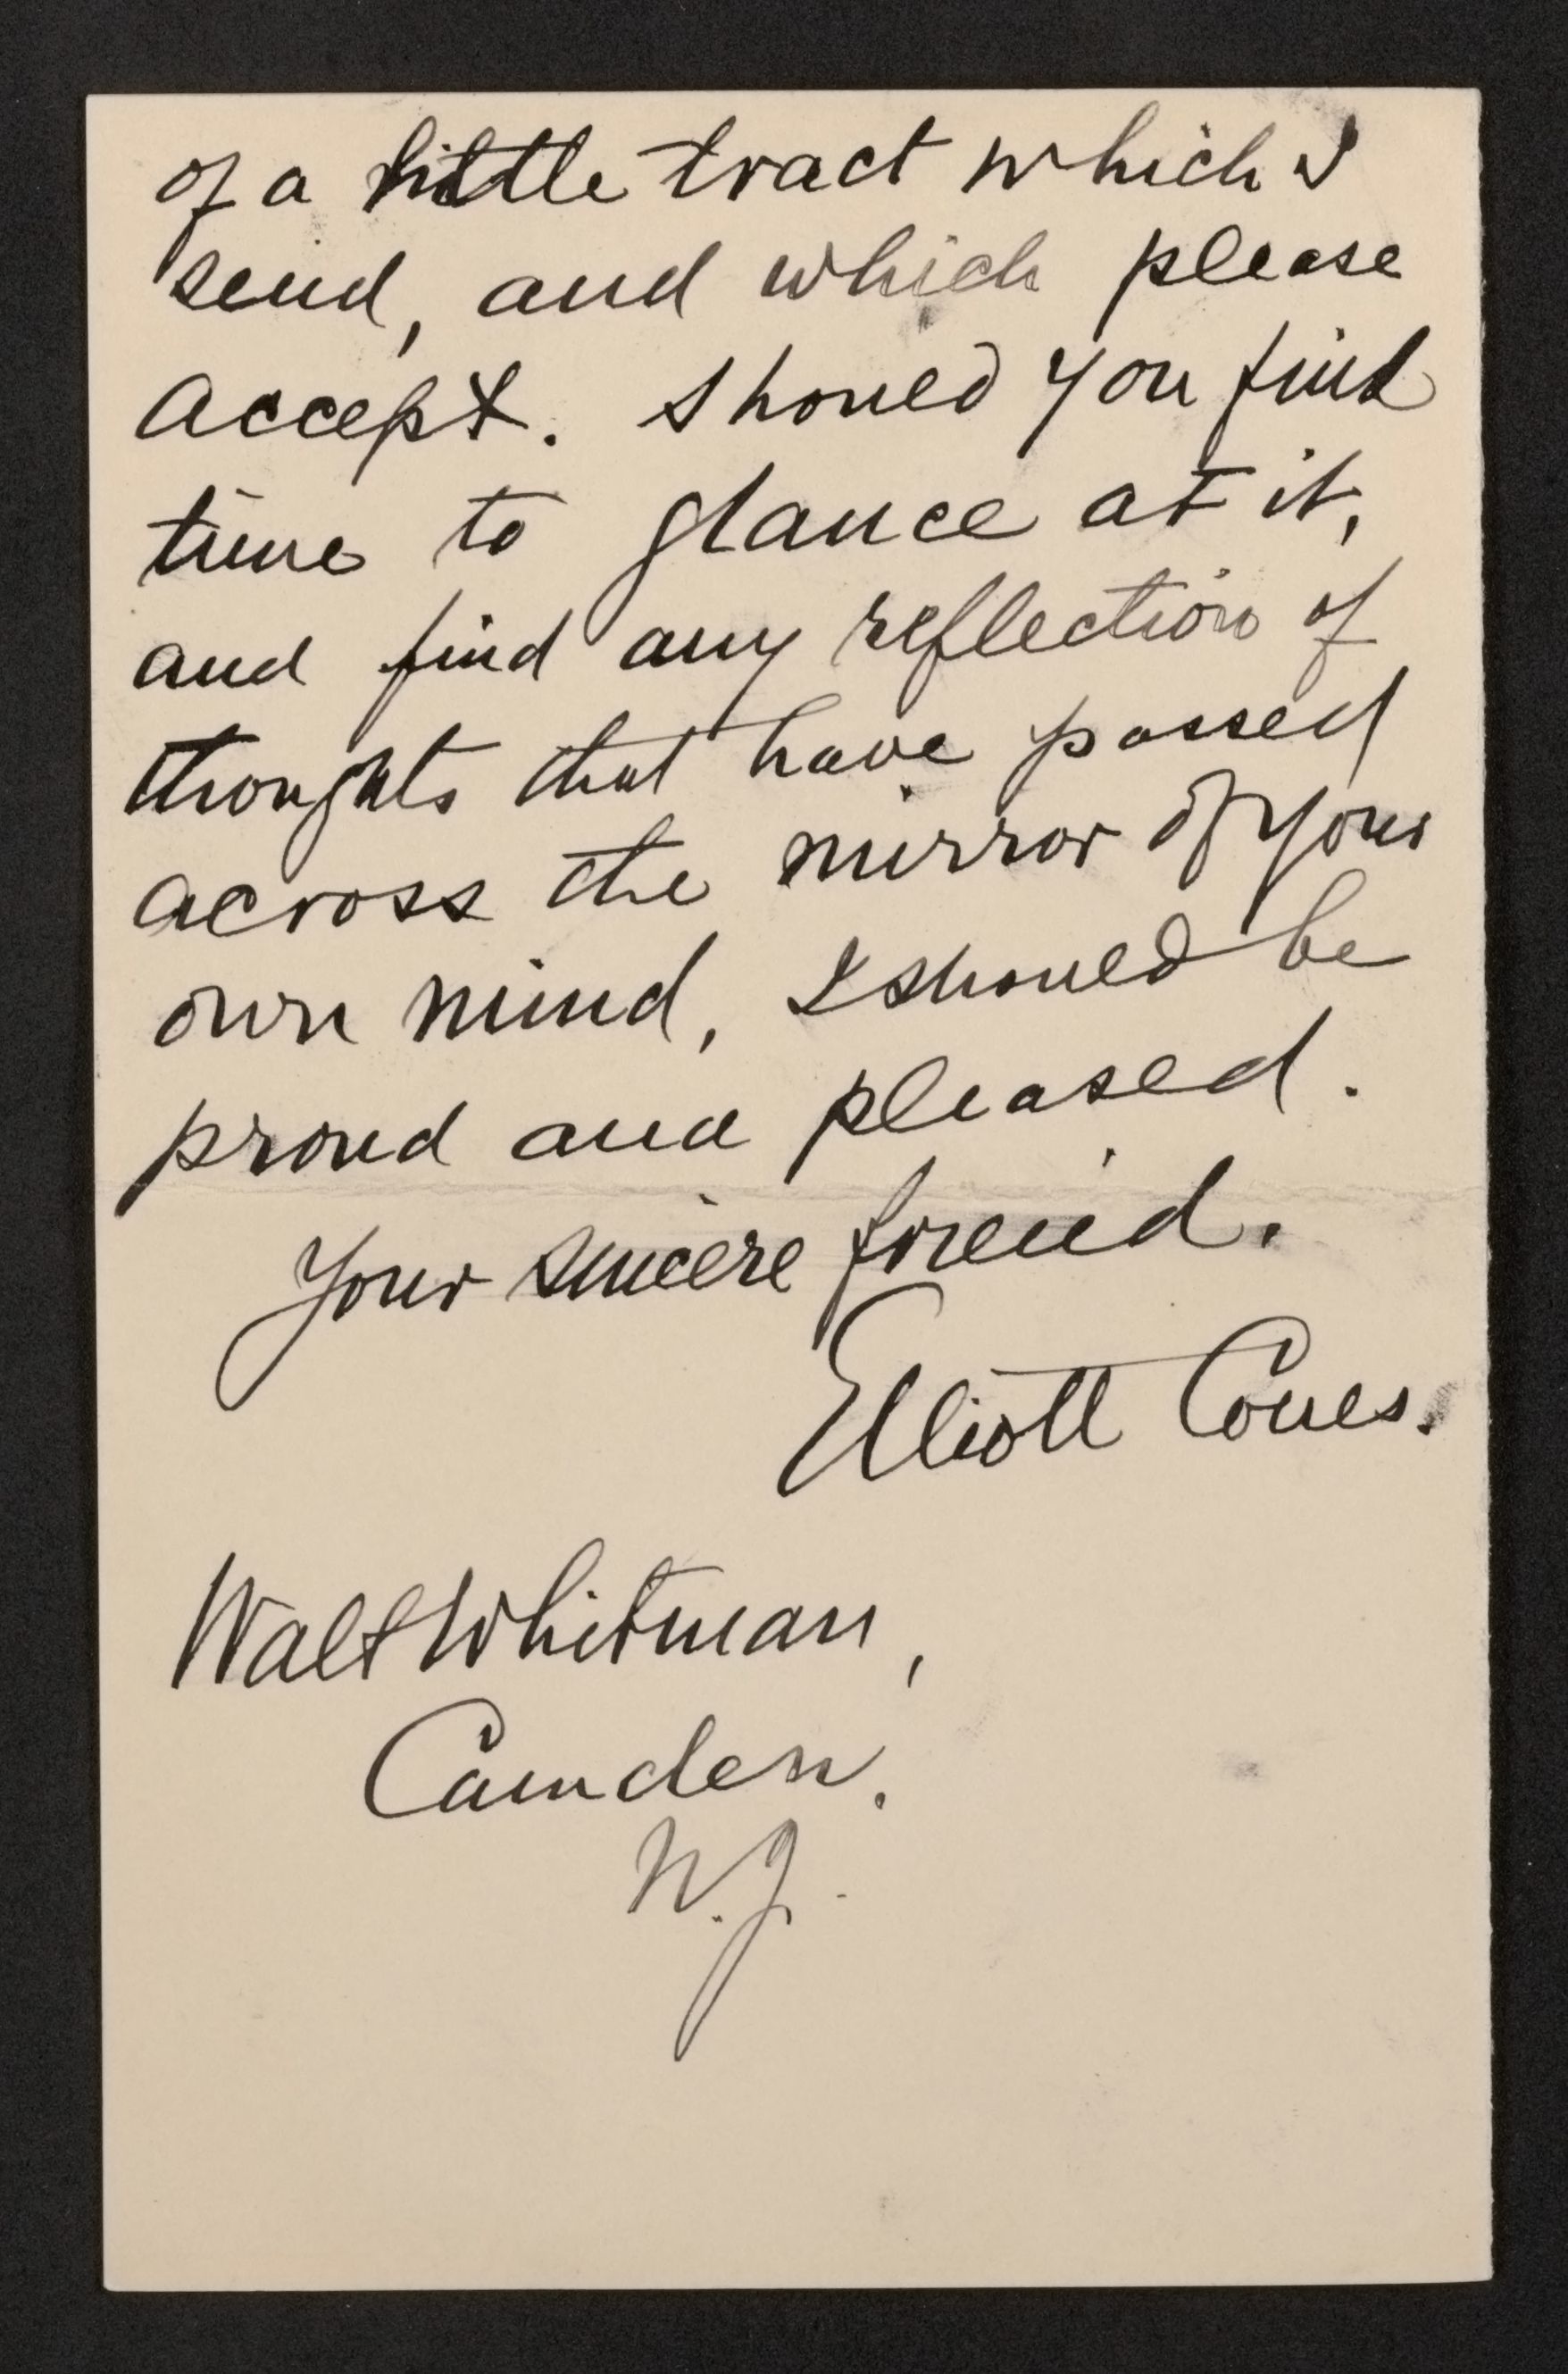 of a little tract which I
send, and which please
accept. Should you find
time to glance at it,
and find any reflection of
thoughts that have passed
across the mirror of your
own mind, I should be
proud and pleased.
Your sincere friend.
Elliott Coues.
Walt Whitman,
Camden.
N.J.